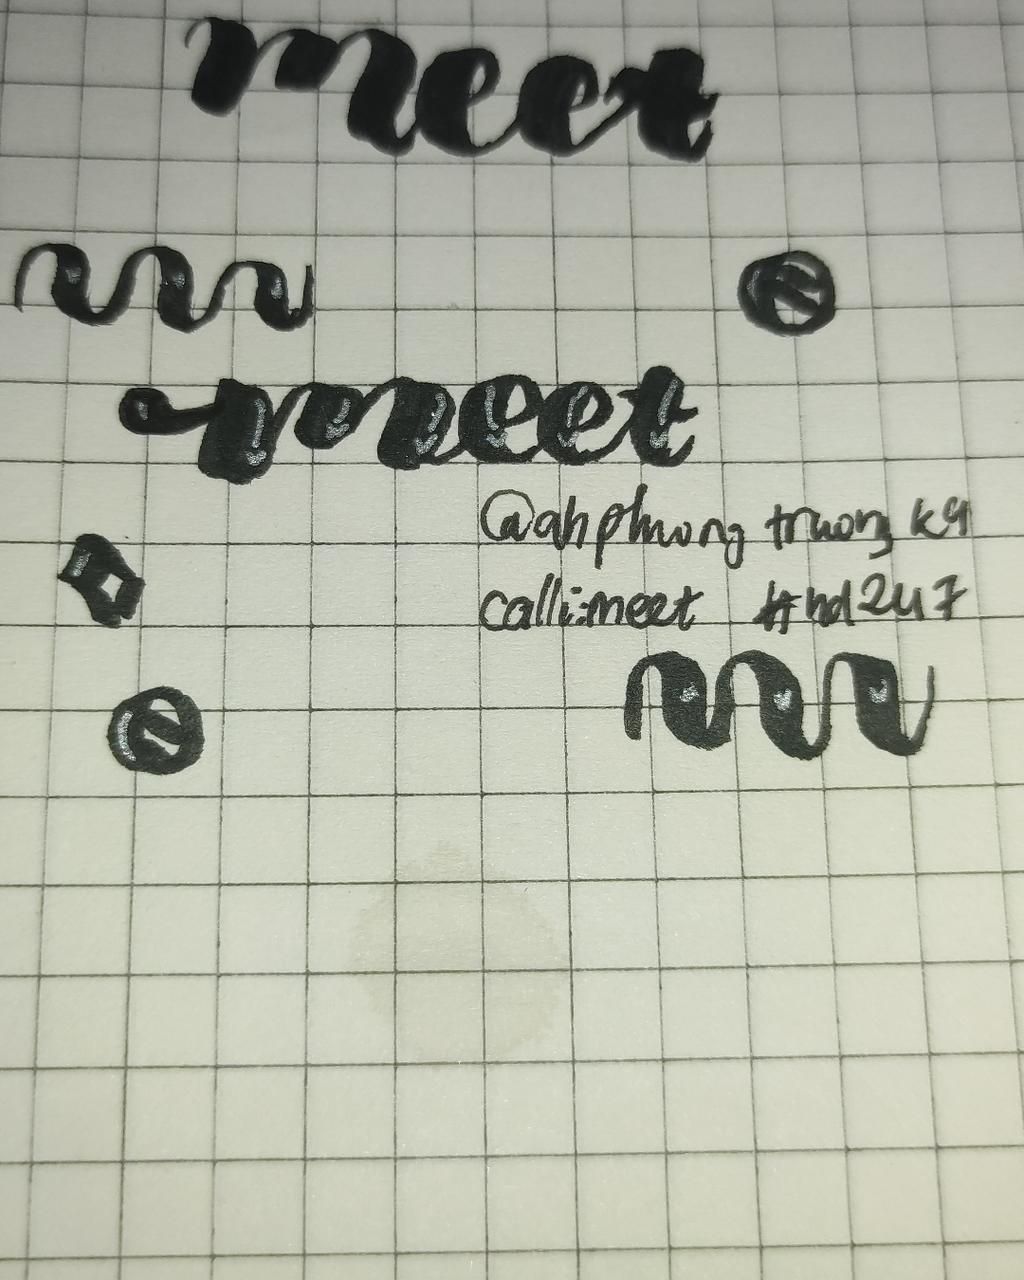 meet
meet
@ahphuong truong k9
calli:meet #hd247